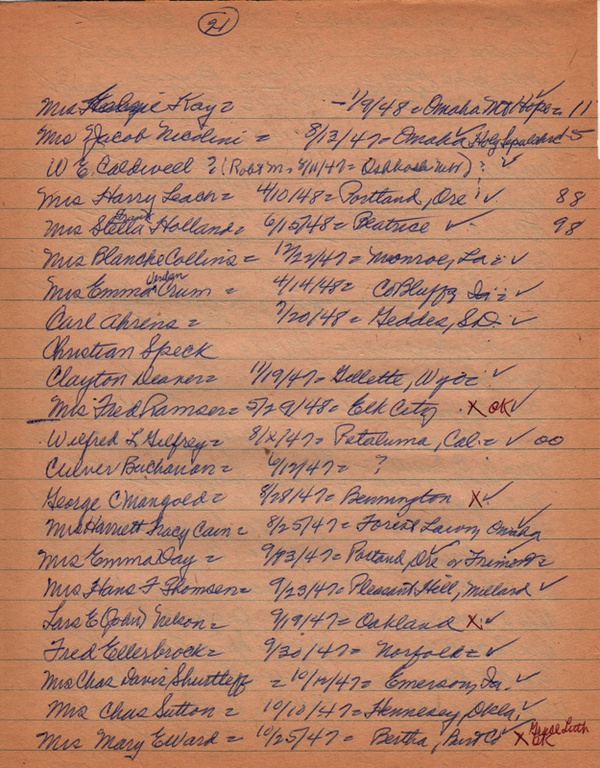 21
Mrs Kay = - 1/9/48 = Omaha Mt Hope = 11
Mrs Jacob Nicolini = 8/13/47 = Omaha Holy Sepulchre 5
W E Caldwell ? (Robt M. 8/11/47 = Oshkosh Neb) ? ✓
Mrs Harry Leach = 4/10/48 = Portland, Ore ✓ 88
Mrs Stella Holland = 6/15/48 = Beatrice ✓ 98
Mrs Blanche Collins = 12/22/47 = Monroe, La = ✓
Mrs Emma Jordan Crum = 4/14/48 = Co Bluffs Ia = ✓
Carl Ahrens = 7/20/48 = Geddes, S.D. ✓
Christian Speck
Clayton Deaver = 11/19/47 = Gillette, Wyo = ✓
Mrs Fred Ramser = 5/29/48 = Elk City . X OK ✓
Wilfred L Gilfrey = 8/ /47 = Petaluma, Cal = ✓ 00
Culver Buchanan = 6/12/47 = ?
George C Mangold = 8/28/47 = Bennington X ✓
Mrs Harriett Tracy Cain = 8/25/47 = Forest Lawn, Omaha
Mrs Emma Day = 9/23/47 = Portland, Ore or Fremont =
Mrs Hans F Thomsen = 9/23/47 = Pleasant Hill, Millard ✓
Lars E (John) Nelson = 9/19/47 = Oakland X ✓
Fred Ellerbrock = 9/30/47 = Norfolk = ✓
Mrs Chas Davis Shurtleff = 10/14/47 = Emerson, Ia. ✓
Mrs Chas Sutton = 10/10/47 = Hennesey, Okla ✓
Mrs Mary E Ward = 10/25/47 = Bertha, Burt Co ✓ X OK Luth